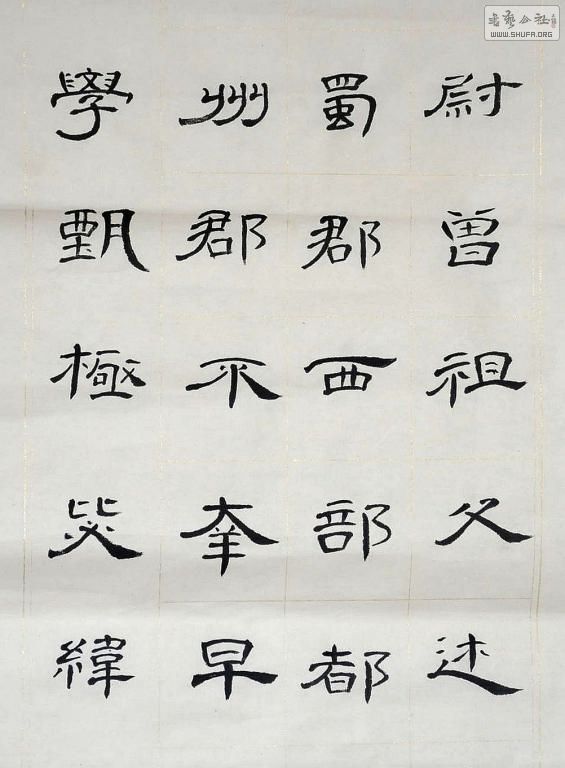 尉曾祖父述
蜀郡西部都
州郡不幸早
學甄極毖緯
書藝公社
WWW.SHUFA.ORG